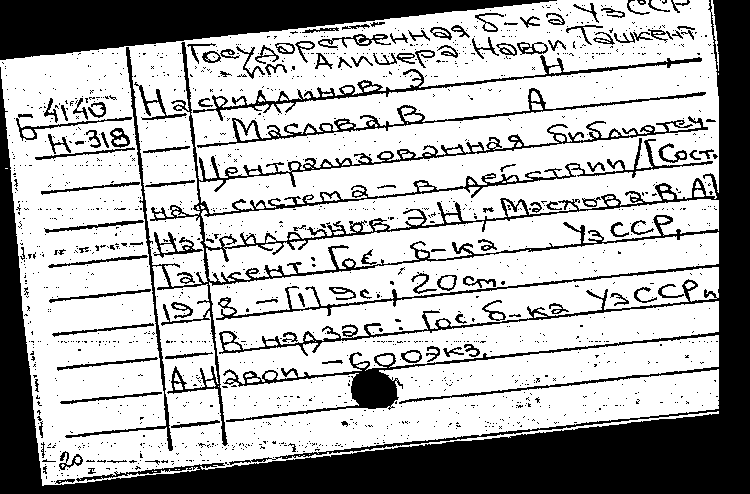 Государственная б-ка УзССР
им. Алишера Навои. Ташкент
Б 4140
Н-318
Насриддинов, Э Н
Маслова, В А
Централизованная библиотеч-
ная система - в действии / [Сост.
Насриддинов Э.Н., Маслова В.А.]
Ташкент: Гос. б-ка УзССР,
1978. - [1], 9с.; 20см.
В надзаг.: Гос. б-ка УзССР им
А. Навои. - 600экз.
20